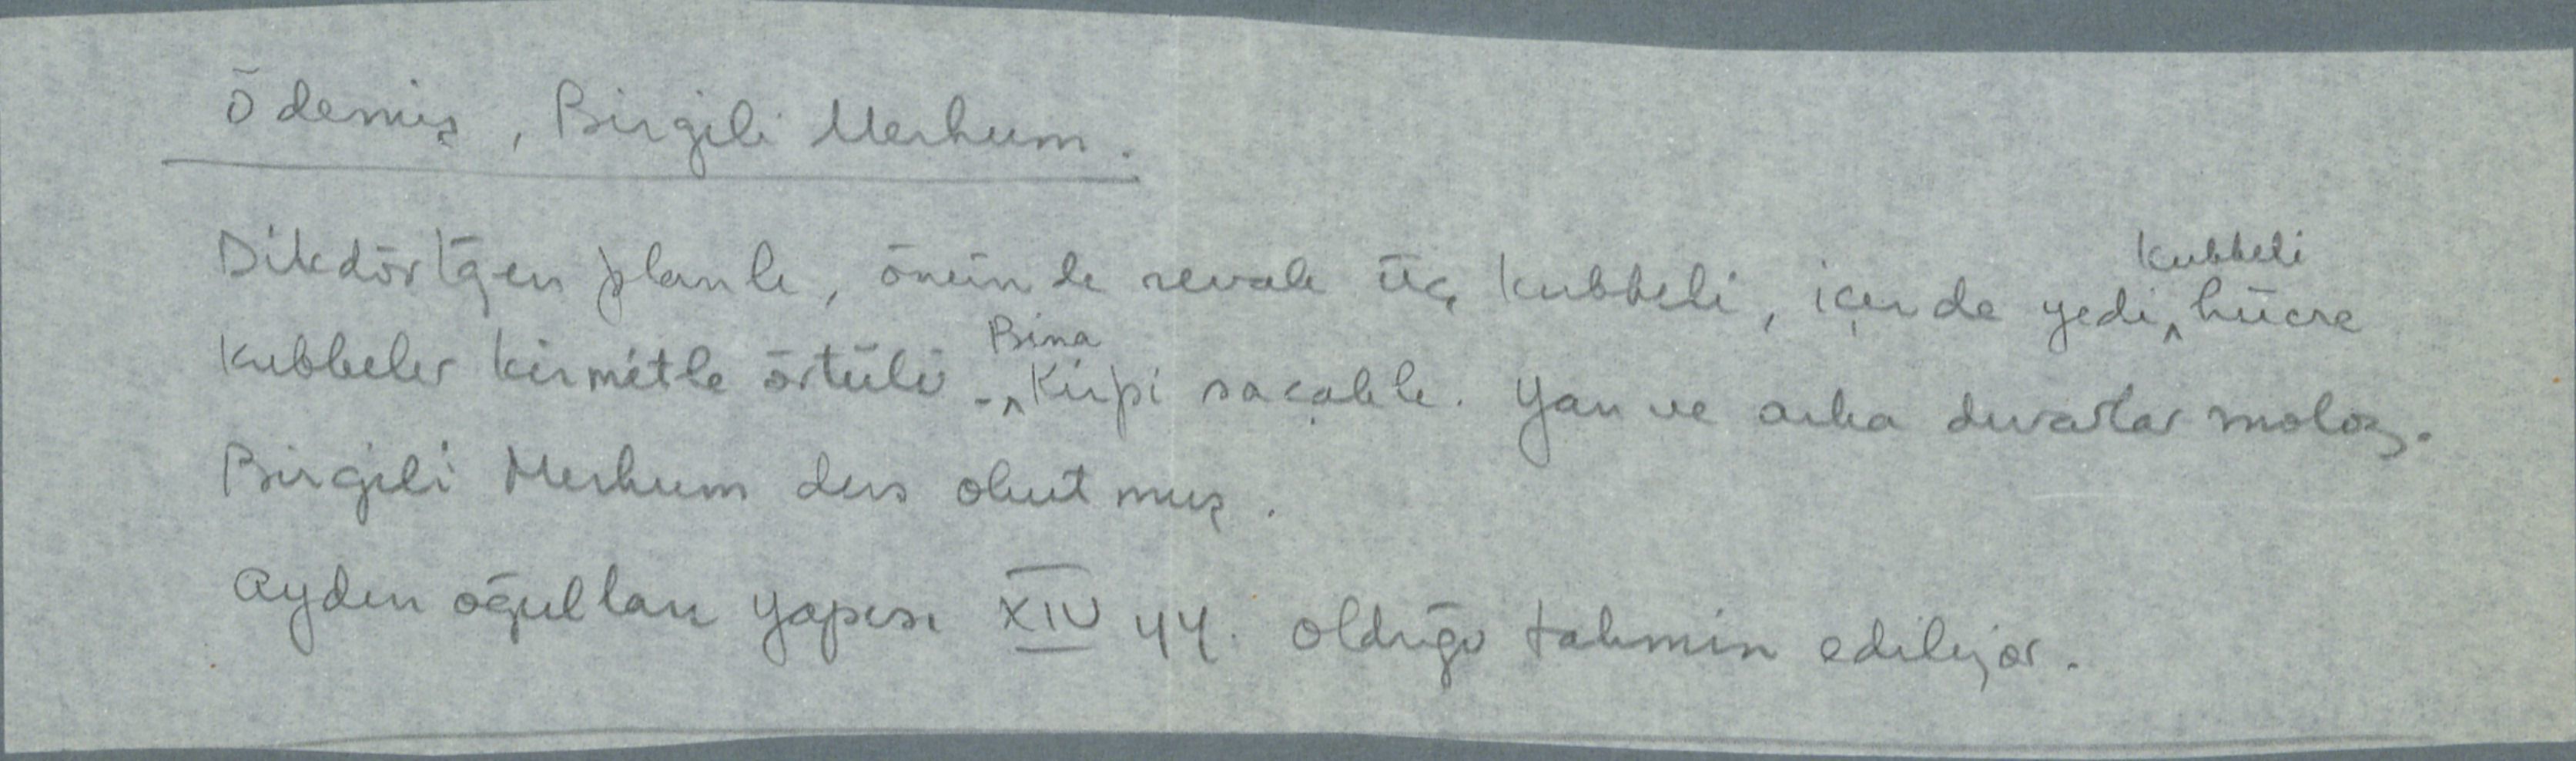 Ödemiş, Birgili Merhum.
Dikdörtgen planlı, önünde revak üç kubbeli, içerde yedi kubbeli hücre
Kubbeler kirmitle örtülü. Bina Kirpi saçaklı. Yan ve arka duvarlar moloz.
Birgili Merhum ders okutmuş.
Aydın oğulları yapısı XIV yy. olduğu tahmin ediliyor.